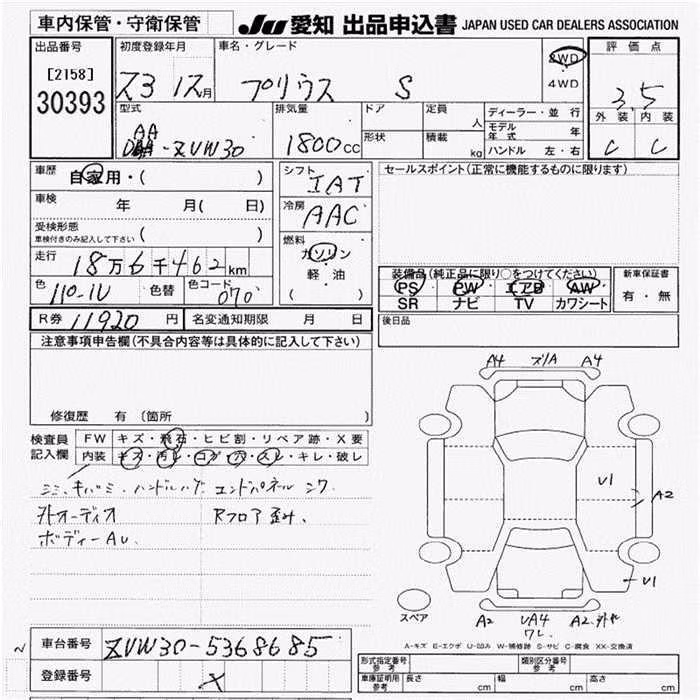 車内保管・守衛保管
JU 愛知 出品申込書 JAPAN USED CAR DEALERS ASSOCIATION
出品番号
[2158]
30393
初度登録年月
23 12月
車名・グレード
プリウス S
2WD
4WD
評価点
3.5
外装 内装
C C
型式
AA
DAA-ZVW30
排気量
1800cc
ドア
形状
定員 人
積載 kg
ディーラー・並行
モデル年式 年
ハンドル 左・右
車歴
自家用・( )
車検 年 月( 日)
受検形態
車検付きのみ記入して下さい ( )
走行
18万6千462km
色 色替 色コード
070
シフト
IAT
冷房
AAC
燃料
ガソリン
・
軽・油
( )
セールスポイント(正常に機能するものに限ります)
装備品(純正品に限り○をつけてください)
PS PW エアB AW
SR ナビ TV カワシート
新車保証書
有・無
R券 11920 円
名変通知期限 月 日
後日品
注意事項申告欄(不具合内容等は具体的に記入して下さい)
修復歴 有(箇所 )
検査員
記入欄
FW キズ・飛石・ヒビ割・リペア跡・X要
内装 キズ・汚レ・コゲ・穴・スレ・キレ・破レ
ハンドルハゲ エンドパネル シワ
外オーディオ Rフロア歪み、
ボディーAU、
A4 ズリA A4
U1
A2
U1
スペア
A2 UA4 A2
ワレ
A-キズ E-エクボ U-凹み W-補修跡 S-サビ C-腐食 XX-交換済
車台番号 ZVW30-5368685
登録番号 X
形式指定番号 参考
類別区分番号 参考
車庫証明用 参考 長さ cm 幅 cm 高さ cm